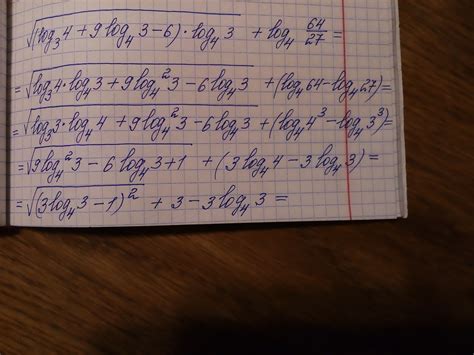 √((log₃4 + 9log₄3 − 6) · log₄3) + log₄ 64/27 =
= √(log₃4 · log₄3 + 9log₄²3 − 6log₄3) + (log₄64 − log₄27) =
= √(log₃3 · log₄4 + 9log₄²3 − 6log₄3) + (log₄4³ − log₄3³) =
= √(9log₄²3 − 6log₄3 + 1) + (3log₄4 − 3log₄3) =
= √((3log₄3 − 1)²) + 3 − 3log₄3 =